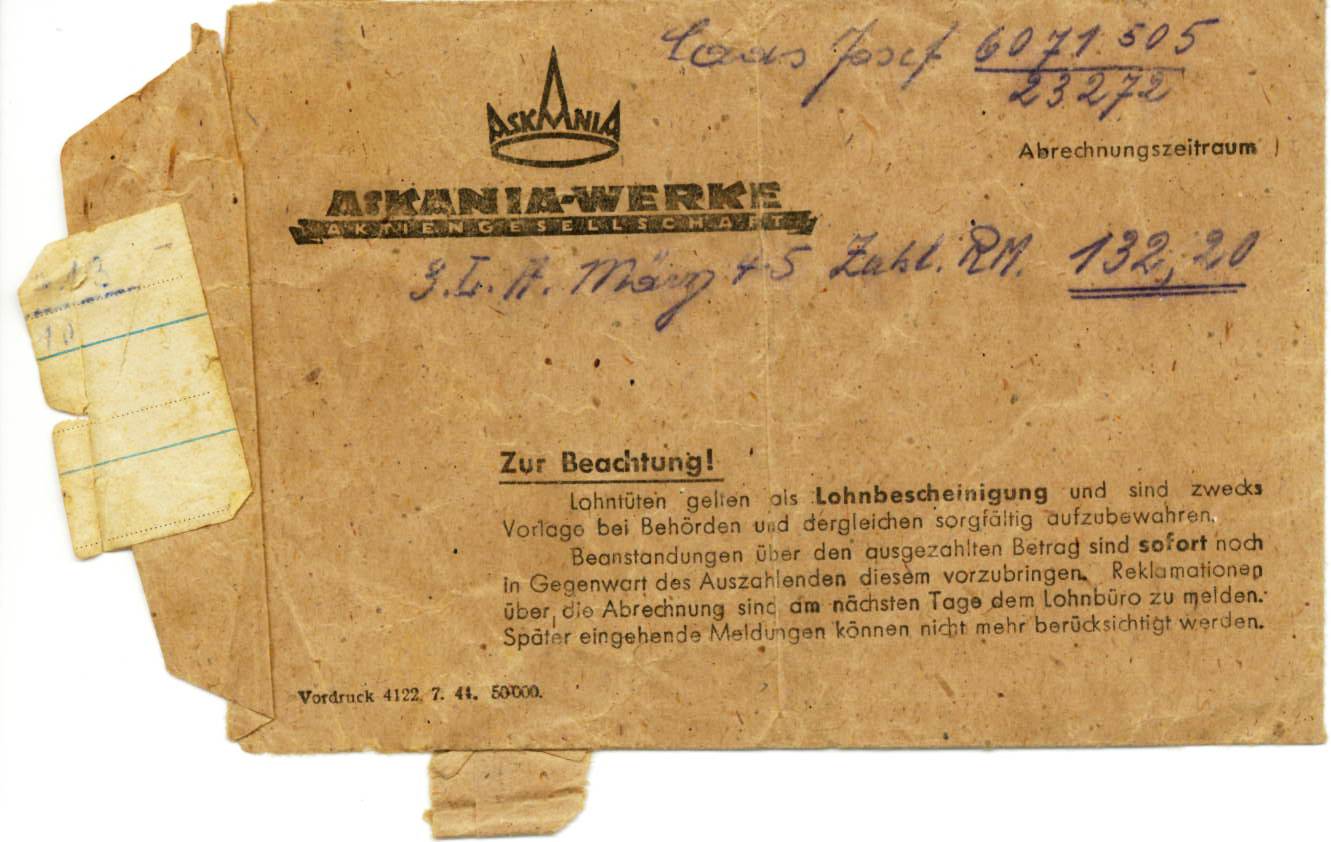 Josef 6071.505
23272
ASKANIA
Abrechnungszeitraum
ASKANIA-WERKE
AKTIENGESELLSCHAFT
März 45 Zahl. RM. 132,20
13
10
Zur Beachtung!
Lohntüten gelten als Lohnbescheinigung und sind zwecks
Vorlage bei Behörden und dergleichen sorgfältig aufzubewahren.
Beanstandungen über den ausgezahlten Betrag sind sofort noch
in Gegenwart des Auszahlenden diesem vorzubringen. Reklamationen
über die Abrechnung sind am nächsten Tage dem Lohnbüro zu melden.
Später eingehende Meldungen können nicht mehr berücksichtigt werden.
Vordruck 4122. 7. 44. 50000.